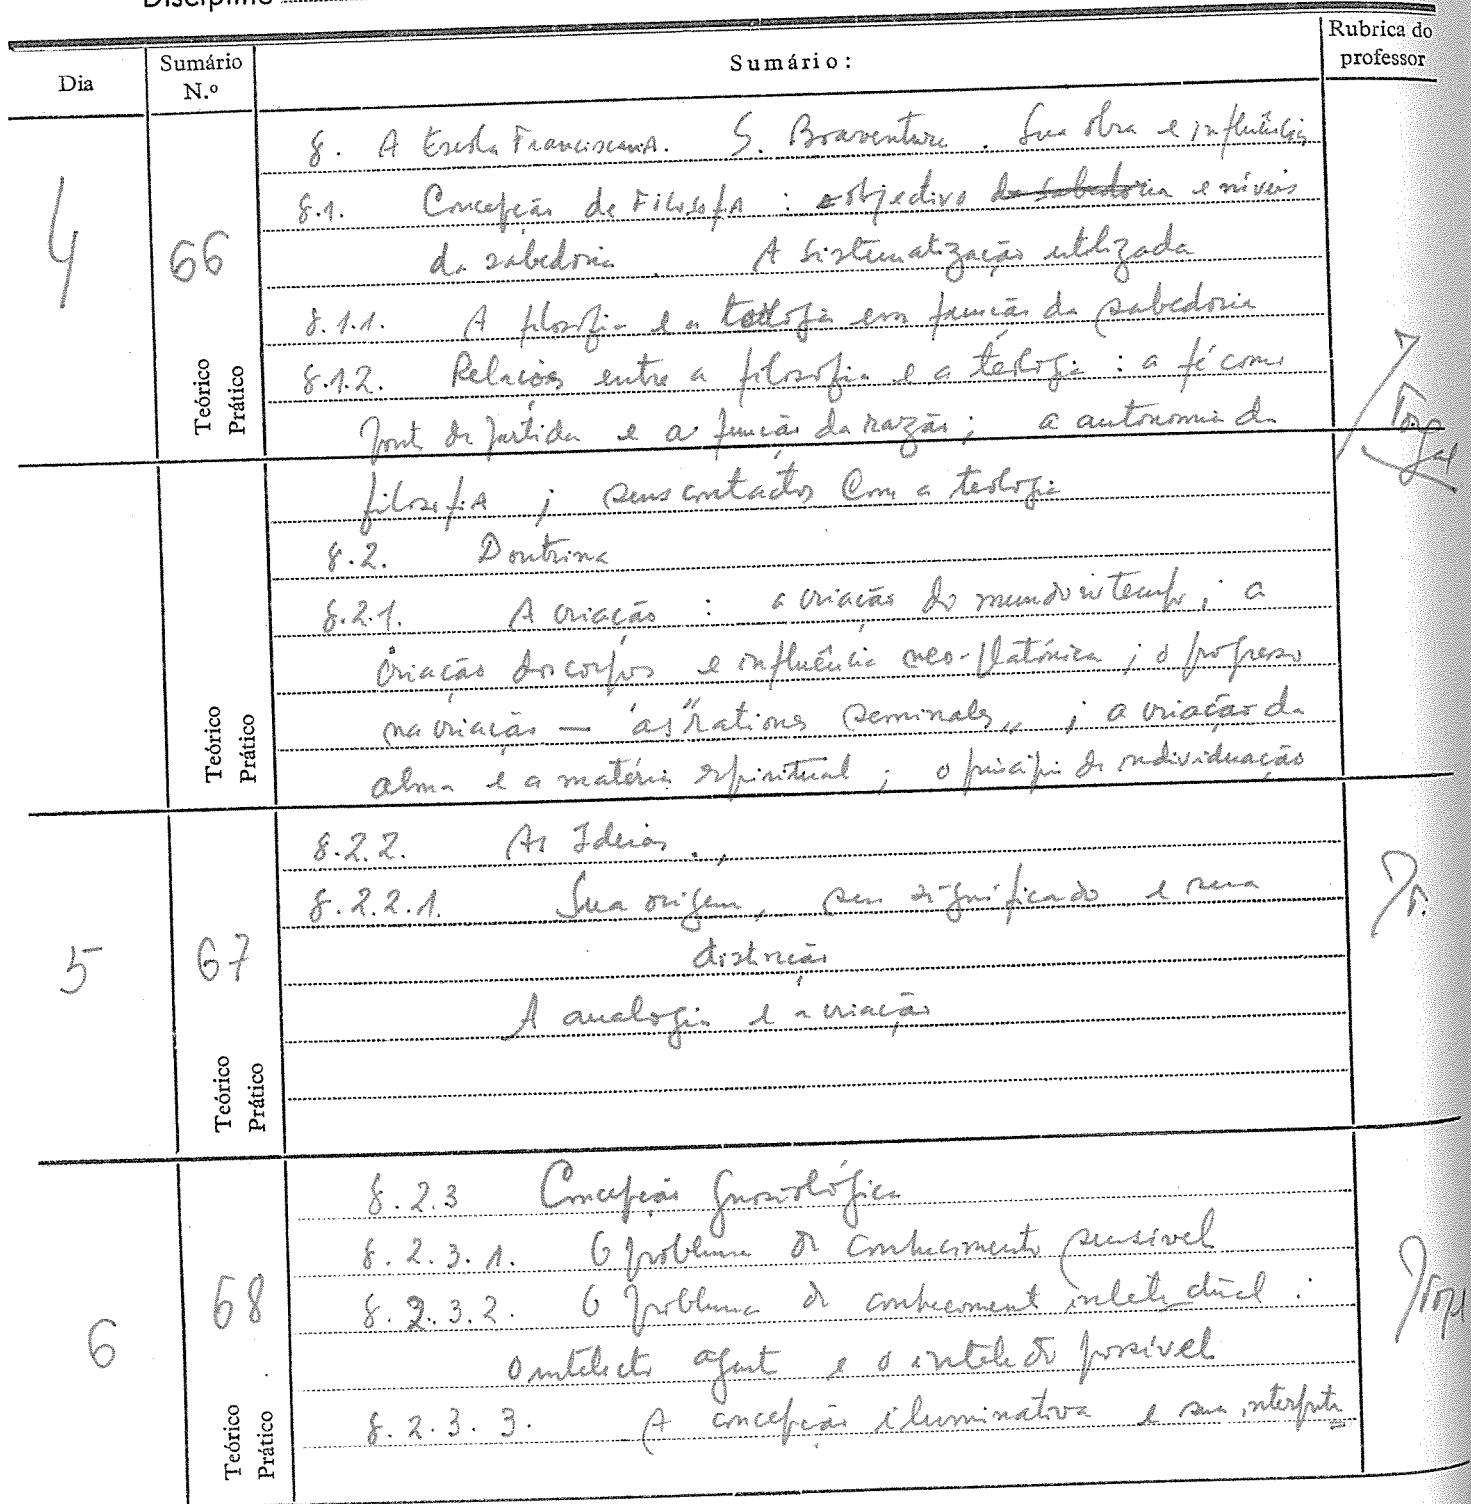 Disciplina
Dia
Sumário N.º
Sumário:
Rubrica do professor
8. A Escola Franciscana. S. Boaventura. Sua obra e influência
8.1. Concepção de Filosofia : objectivo da sabedoria e níveis
da sabedoria. A sistematização utilizada
8.1.1. A filosofia e a teologia em função da sabedoria
8.1.2. Relações entre a filosofia e a teologia : a fé como
ponto de partida e a função da razão; a autonomia da
4
66
Teórico
Prático
filosofia ; seus contactos com a teologia
8.2. Doutrina
8.2.1. A criação : a criação do mundo in tempore ; a
criação dos corpos e influência neo-platónica ; o progresso
na criação — as "rationes seminales" ; a criação da
alma e a matéria espiritual ; o princípio de individuação
Teórico
Prático
8.2.2. As Ideias.
8.2.2.1. Sua origem, seu significado e sua
distinção
A analogia e a criação
5
67
Teórico
Prático
8.2.3 Concepção gnosiológica
8.2.3.1. O problema do conhecimento sensível
8.2.3.2. O problema do conhecimento intelectual :
o intelecto agente e o intelecto possível
8.2.3.3. A concepção iluminativa e sua interpreta=
6
68
Teórico
Prático